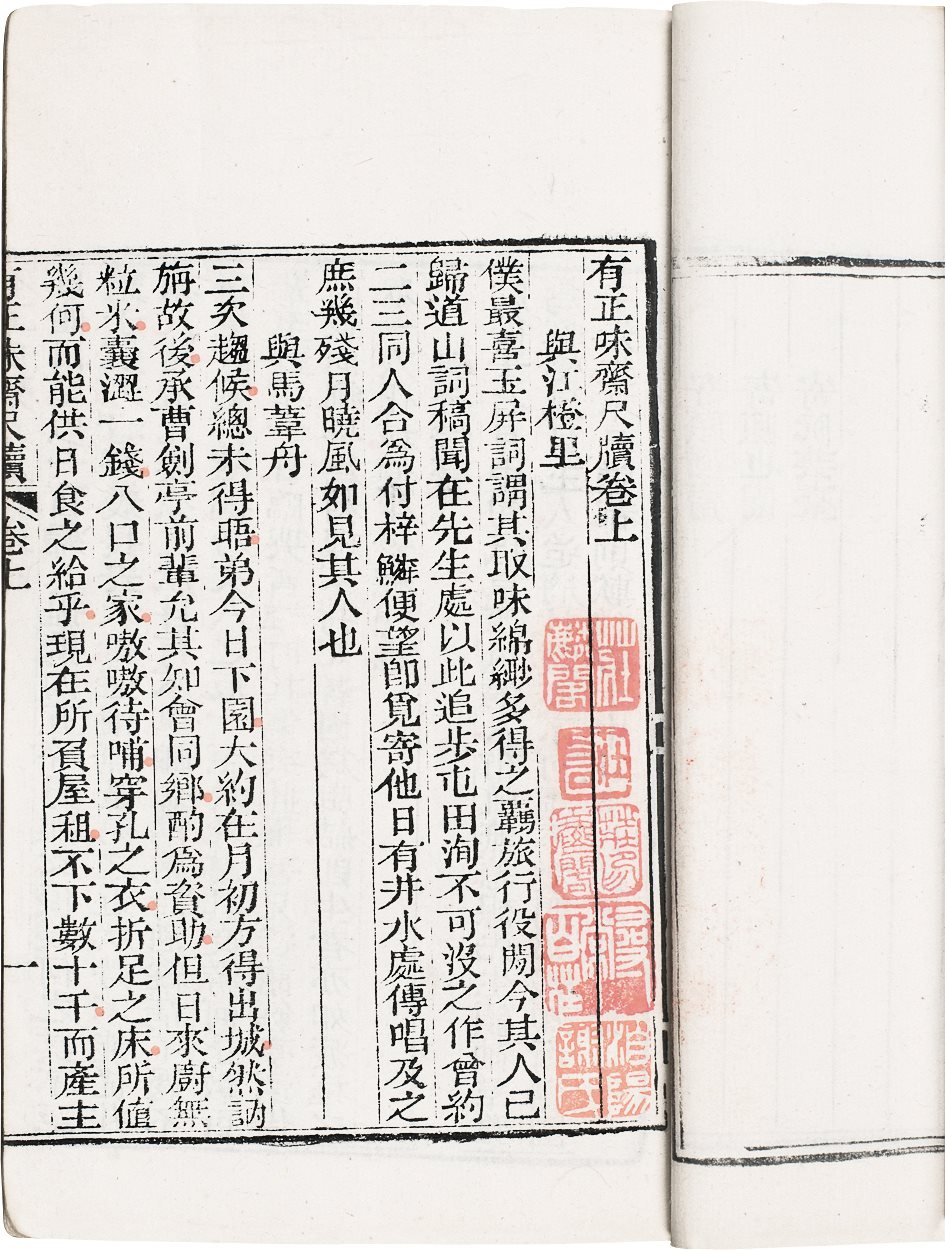 有正味齋尺牘卷上
與江橙里
僕最喜玉屏詞謂其取味綿緲多得之羈旅行役閒今其人已
歸道山詞稿聞在先生處以此追步屯田洵不可沒之作曾約
二三同人合為付梓鱗便望卽覓寄他日有井水處傳唱及之
庶幾殘月曉風如見其人也
與馬葦舟
三次趨候總未得晤弟今日下園大約在月初方得出城然訥
旃故後承曹劍亭前輩允其知會同鄉酌為資助但日來廚無
粒米囊澀一錢八口之家嗷嗷待哺穿孔之衣折足之床所值
幾何而能供日食之給乎現在所負屋租不下數十千而產主
有正味齋尺牘 卷上 一